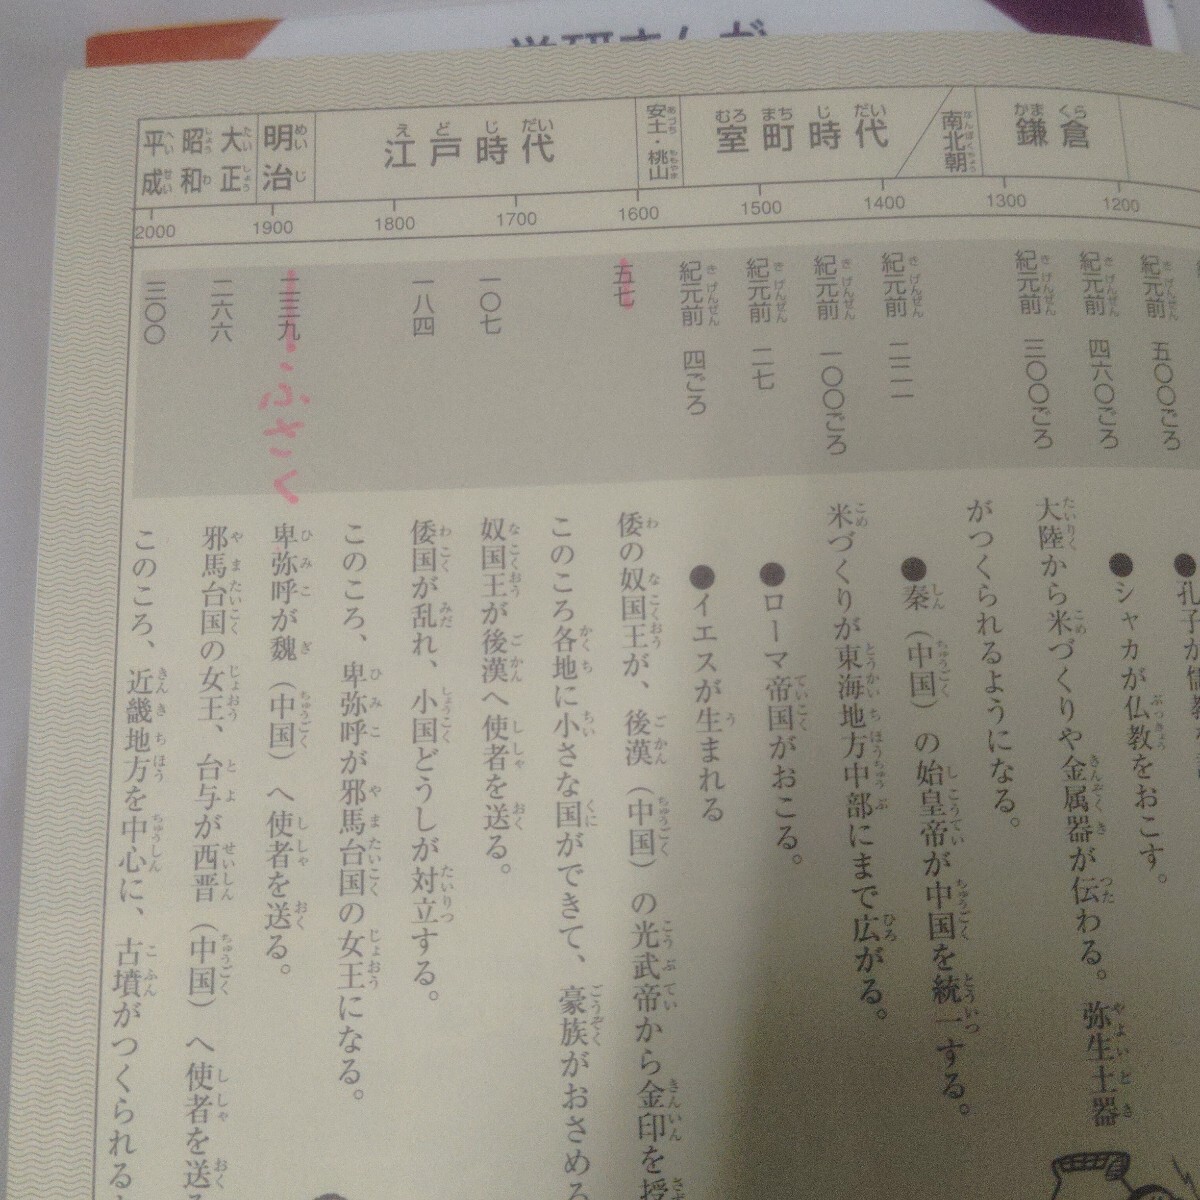 学研まんが
鎌倉
南北朝
室町時代
安土・桃山
江戸時代
明治
大正
昭和
平成
1200
1300
1400
1500
1600
1700
1800
1900
2000
紀元前 五〇〇ごろ
紀元前 四六〇ごろ
●シャカが仏教をおこす。
紀元前 三〇〇ごろ
大陸から米づくりや金属器が伝わる。弥生土器
がつくられるようになる。
紀元前 二二一
●秦（中国）の始皇帝が中国を統一する。
紀元前 一〇〇ごろ
米づくりが東海地方中部にまで広がる。
紀元前 二七
●ローマ帝国がおこる。
紀元前 四ごろ
●イエスが生まれる
五七
倭の奴国王が、後漢（中国）の光武帝から金印を授
このころ各地に小さな国ができて、豪族がおさめる
一〇七
奴国王が後漢へ使者を送る。
一八四
倭国が乱れ、小国どうしが対立する。
このころ、卑弥呼が邪馬台国の女王になる。
二三九
ふさく
卑弥呼が魏（中国）へ使者を送る。
二六六
邪馬台国の女王、台与が西晋（中国）へ使者を送る
三〇〇
このころ、近畿地方を中心に、古墳がつくられる